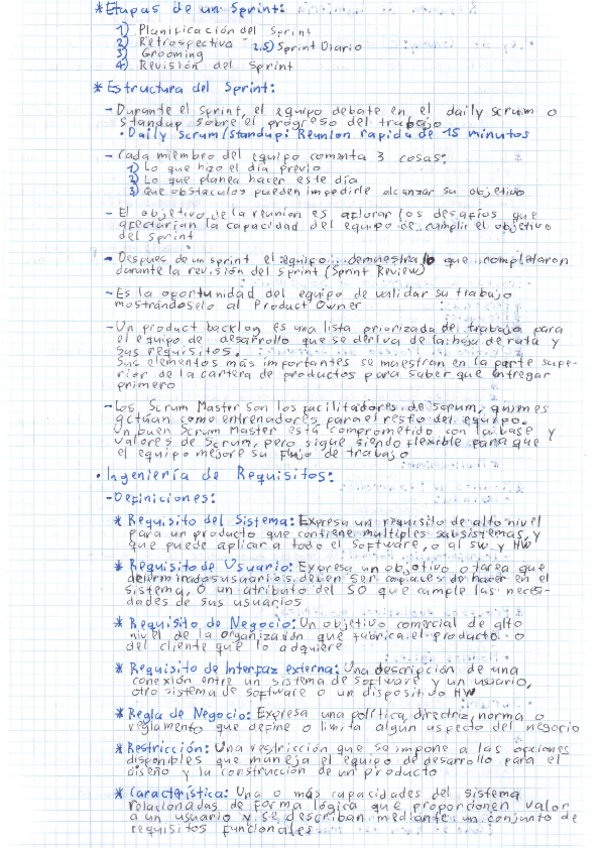 * Etapas de un Sprint:
1) Planificación del Sprint
2) Retrospectiva 2.5) Sprint Diario
3) Grooming
4) Revisión del Sprint
* Estructura del Sprint:
- Durante el sprint, el equipo debate en el daily scrum o
standup sobre el progreso del trabajo
• Daily Scrum/standup: Reunion rapida de 15 minutos
- Cada miembro del equipo comenta 3 cosas:
1) Lo que hizo el día previo
2) Lo que planea hacer este día
3) Que obstaculos pueden impedirle alcanzar su objetivo
- El objetivo de la reunion es aflorar los desafios que
afectarian la capacidad del equipo de cumplir el objetivo
del sprint
- Despues de un sprint el equipo demuestra lo que completaron
durante la revisión del sprint (Sprint Review)
- Es la oportunidad del equipo de validar su trabajo
mostrándoselo al Product Owner
- Un product backlog es una lista priorizada de trabajo para
el equipo de desarrollo que se deriva de la hoja de ruta y
sus requisitos.
Sus elementos más importantes se muestran en la parte supe-
rior de la cartera de productos para saber que entregar
primero
- Los Scrum Master son los facilitadores de scrum, quienes
actúan como entrenadores para el resto del equipo.
Un buen Scrum Master está comprometido con la base y
valores de Scrum, pero sigue siendo flexible para que
el equipo mejore su flujo de trabajo
• Ingeniería de Requisitos:
- Definiciones:
* Requisito del Sistema: Expresa un requisito de alto nivel
para un producto que contiene multiples subsistemas, y
que puede aplicar a todo el software, o al sw y HW
* Requisito de Usuario: Expresa un objetivo o tarea que
determinados usuarios deben ser capaces de hacer en el
sistema, O un atributo del SO que cumple las necesi-
dades de sus usuarios
* Requisito de Negocio: Un objetivo comercial de alto
nivel de la organización que fabrica el producto o
del cliente que lo adquiere
* Requisito de Interfaz externa: Una descripción de una
conexión entre un sistema de software y un usuario,
otro sistema de software o un dispositivo HW
* Regla de Negocio: Expresa una política, directriz, norma o
reglamento que define o limita algun aspecto del negocio
* Restricción: Una restricción que se impone a las opciones
disponibles que maneja el equipo de desarrollo para el
diseño y la construcción de un producto
* Característica: Una o más capacidades del sistema
relacionadas de forma lógica que proporcionen valor
a un usuario y se describan mediante un conjunto de
requisitos funcionales